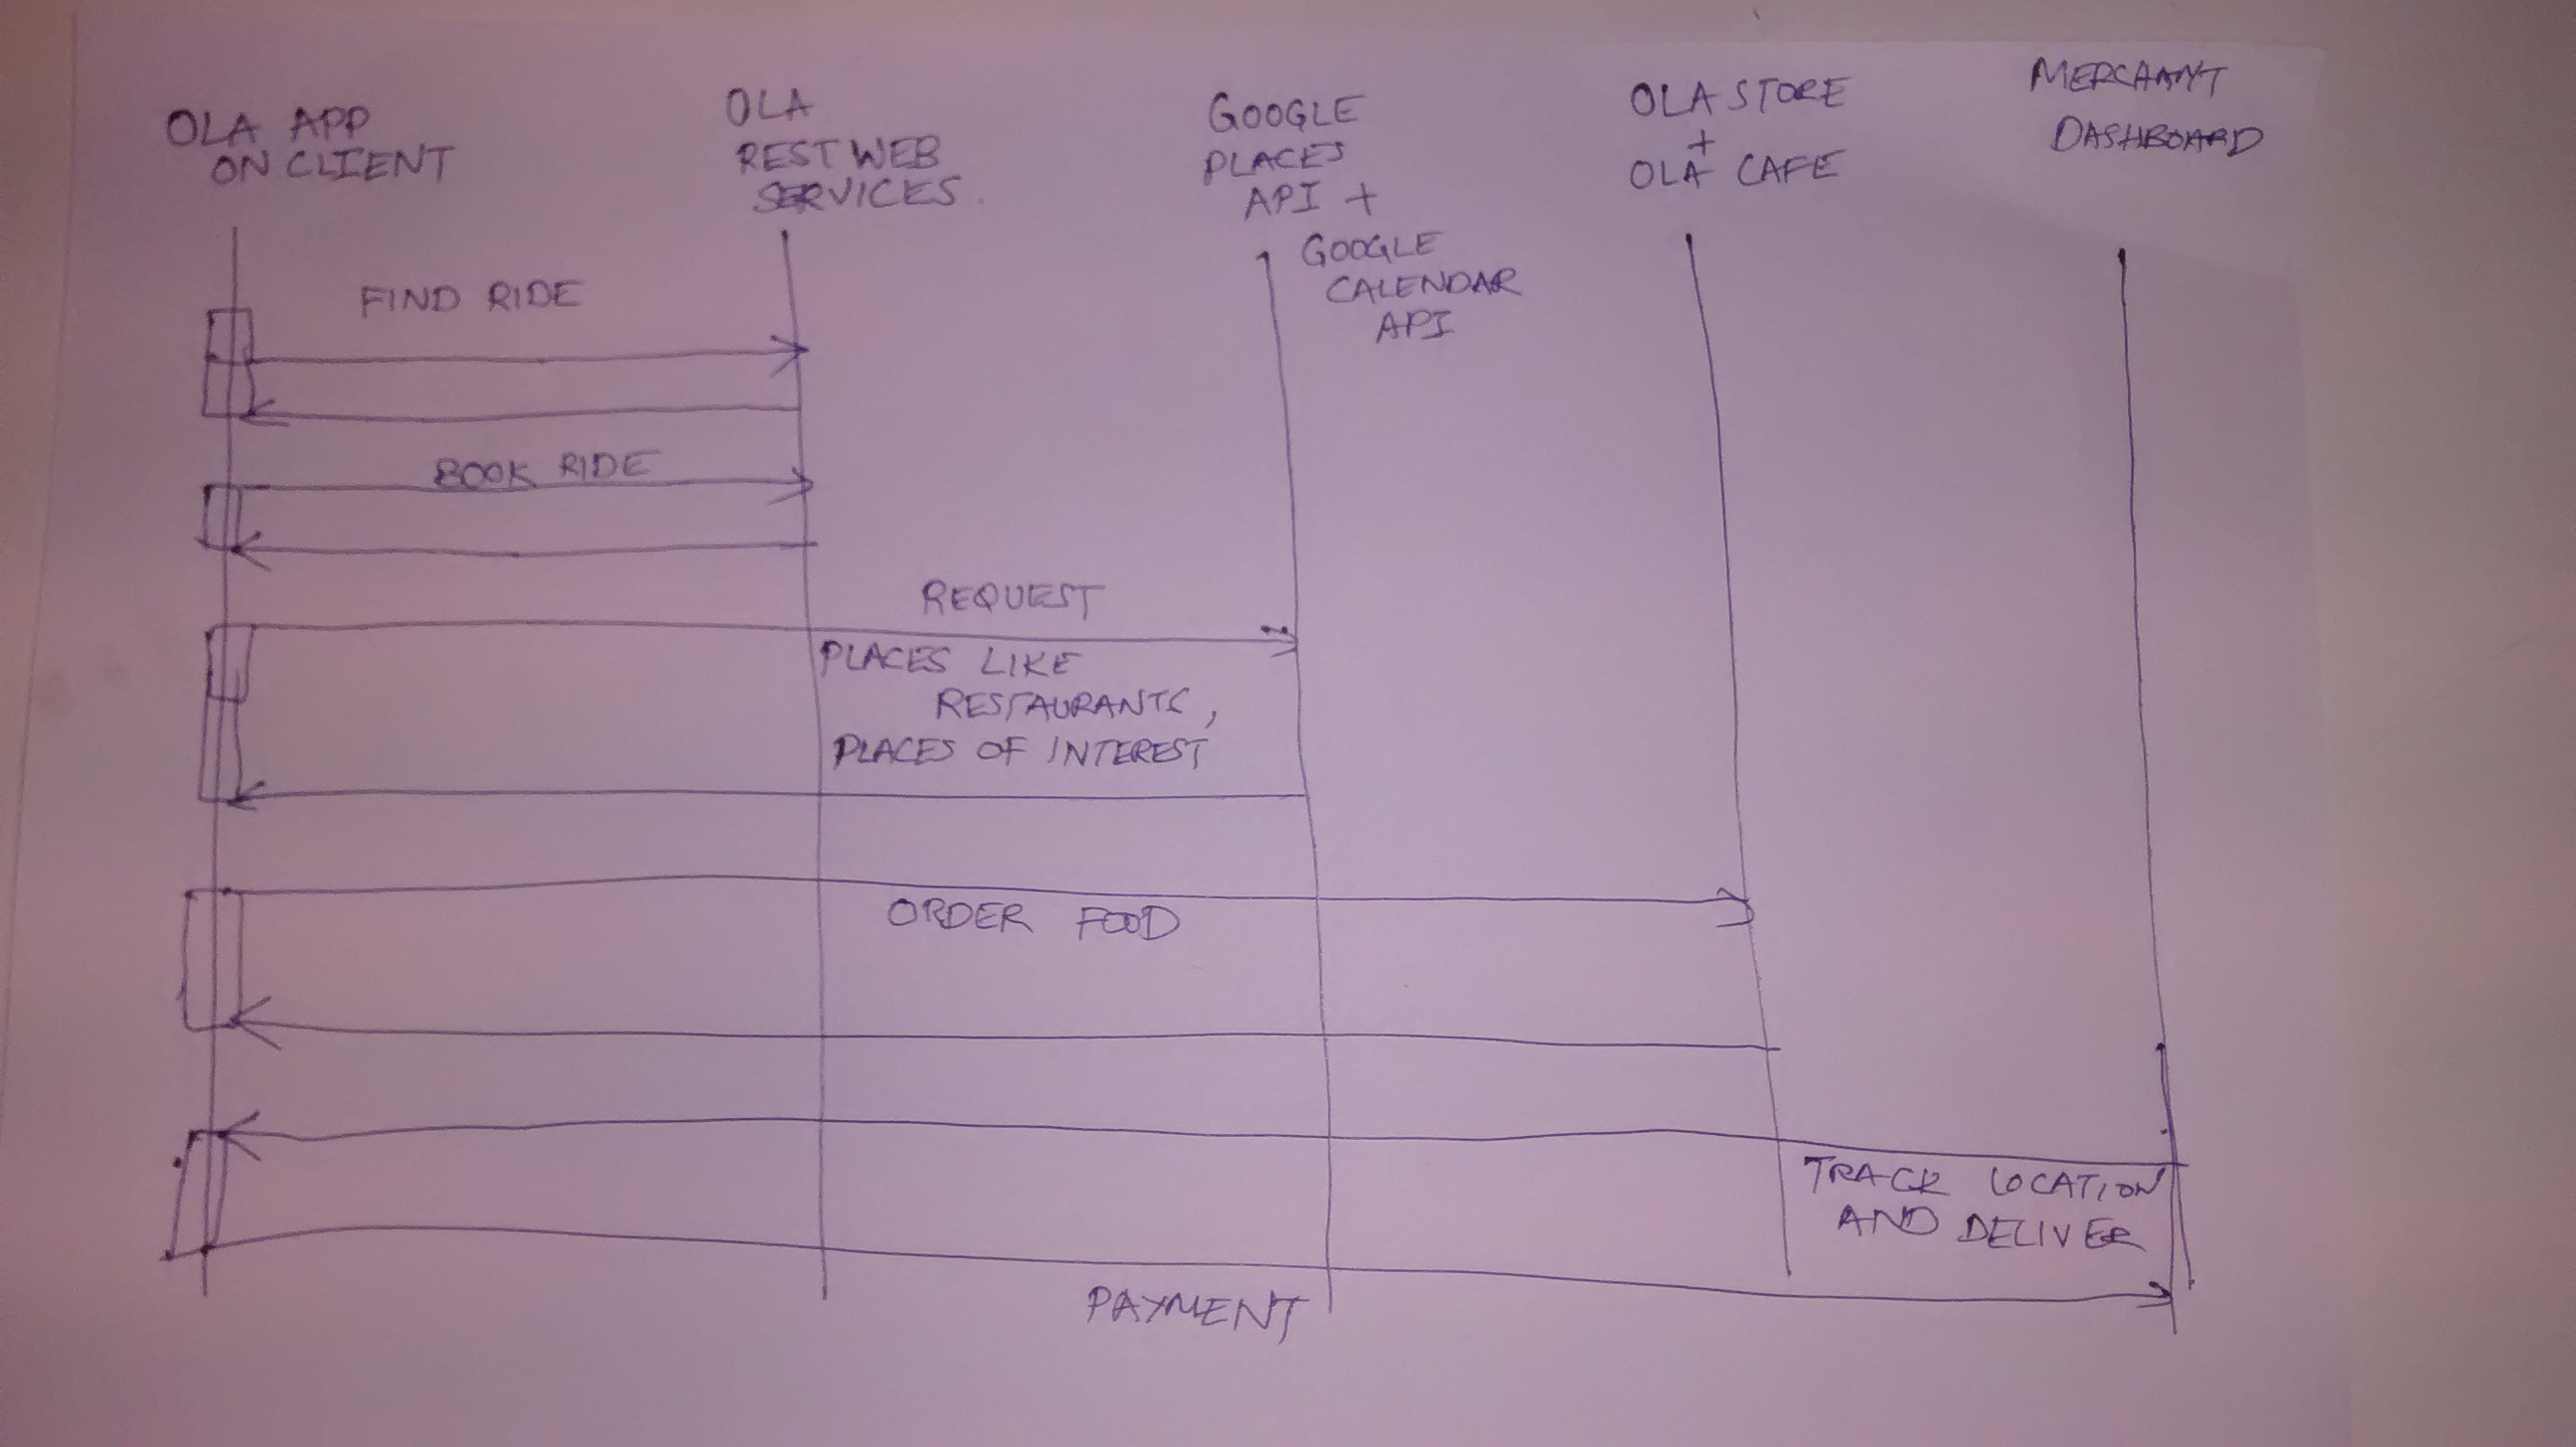 OLA APP
ON CLIENT
OLA
REST WEB
SERVICES.
GOOGLE
PLACES
API +
GOOGLE
CALENDAR
API
OLA STORE
+
OLA CAFE
MERCHANT
DASHBOARD
FIND RIDE
BOOK RIDE
REQUEST
PLACES LIKE
RESTAURANTS,
PLACES OF INTEREST
ORDER FOOD
TRACK LOCATION
AND DELIVER
PAYMENT